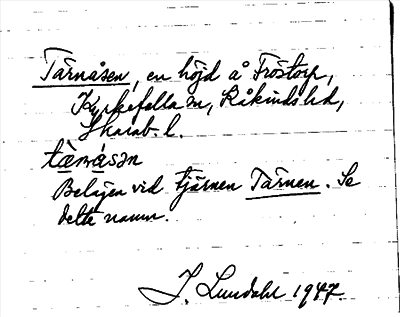 Tärnåsen, en höjd å Fröstorp,
Kyrkefalla sn, Kåkinds hd,
Skarab. l.
tæ̀ṇå̀sən
Belägen vid tjärnen Tärnen. Se
detta namn.
J. Lundahl 1947.